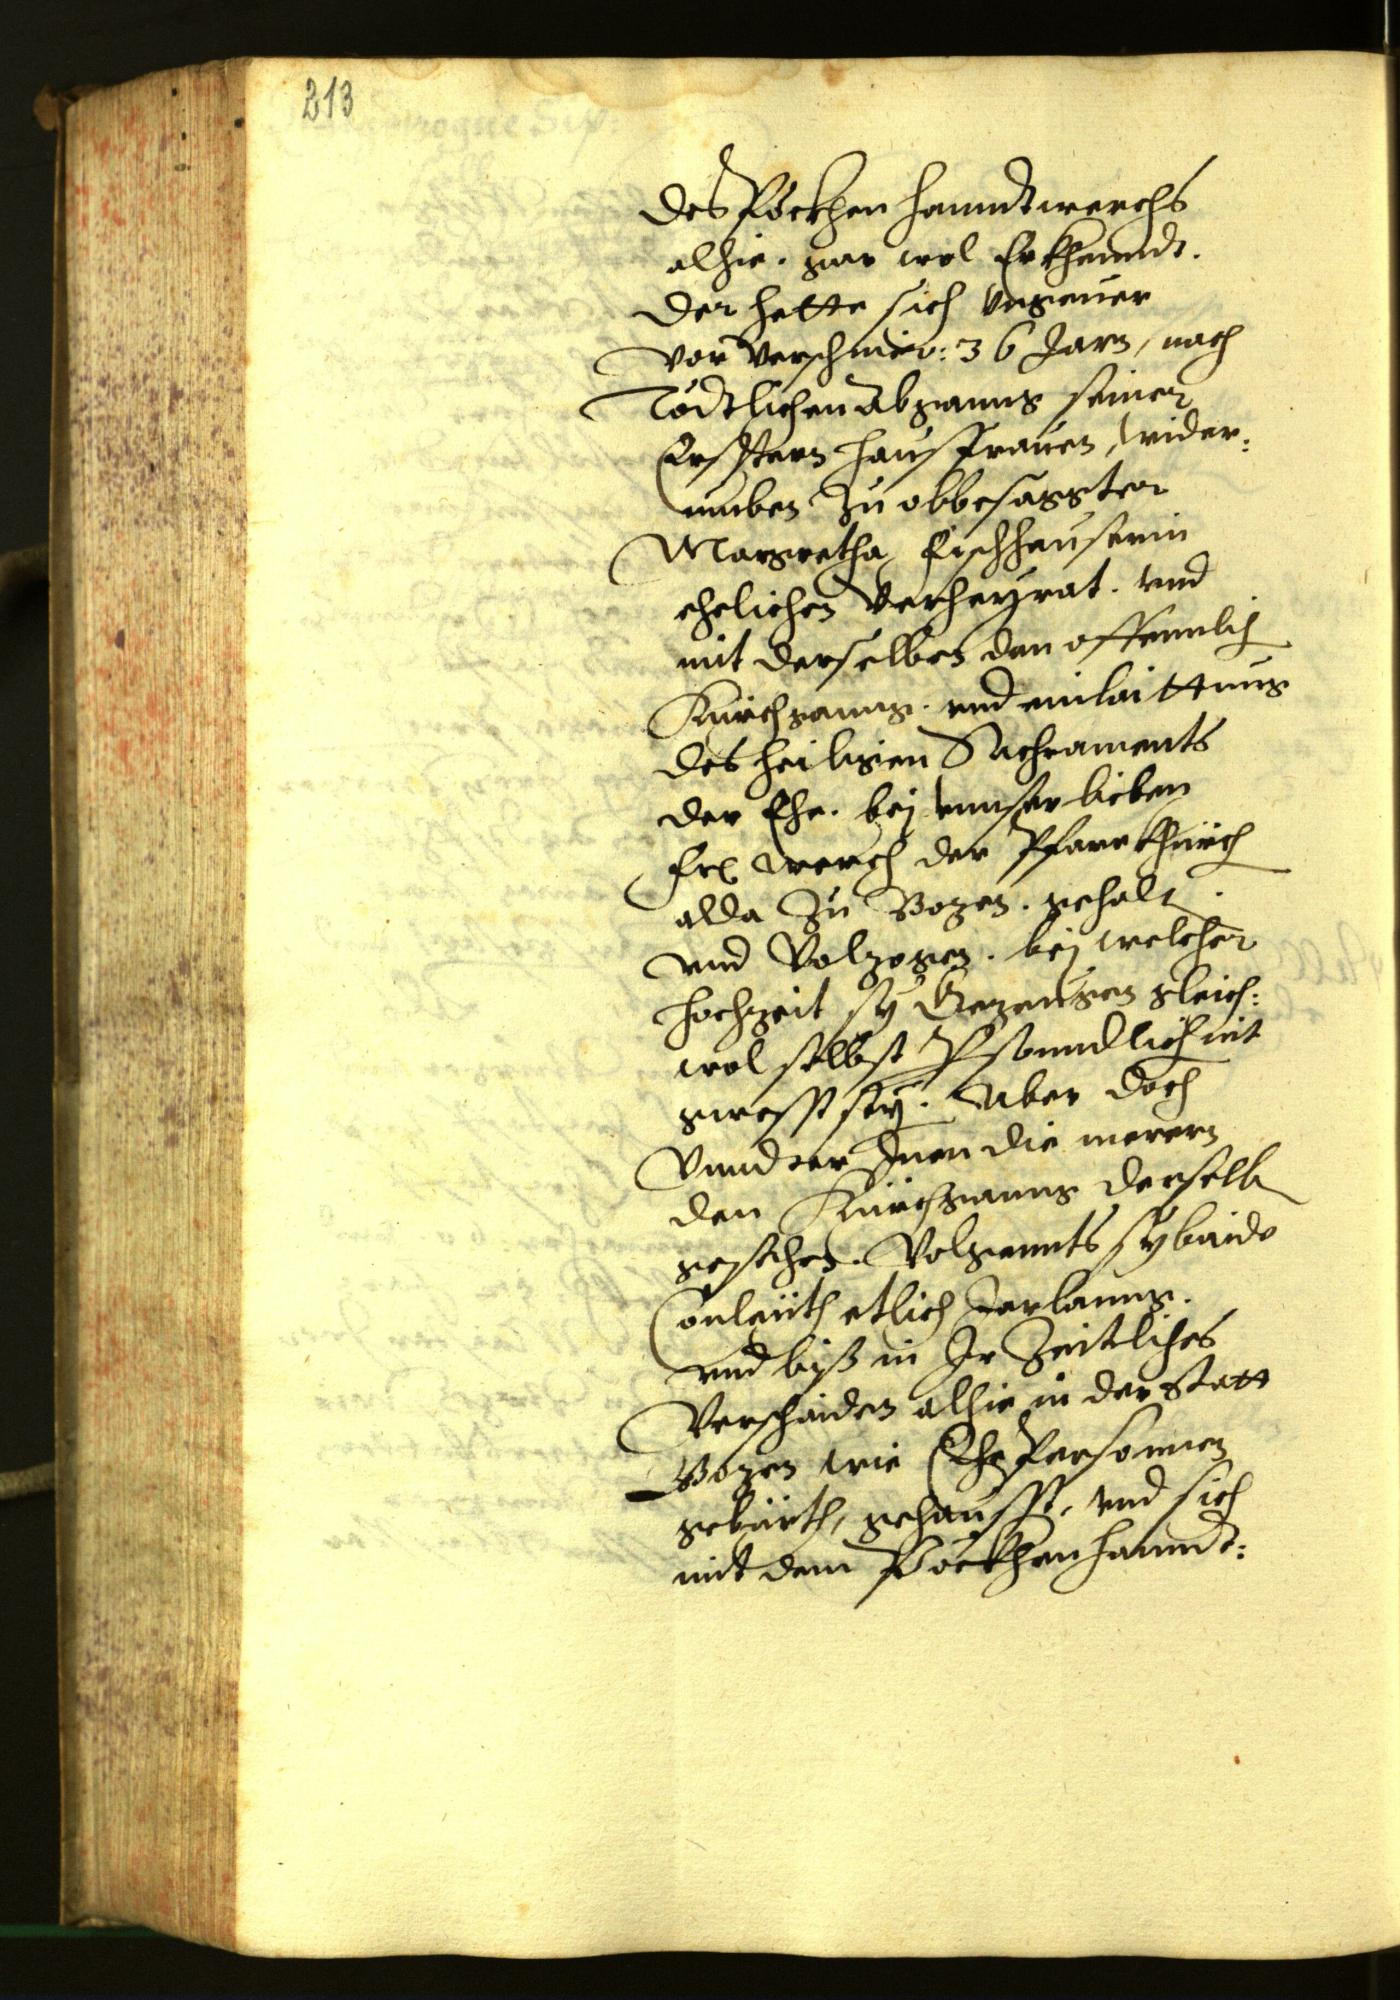 213
des Pöckhen hanndtwerchs
alhie. gar wol Erkhenndt.
Der hette sich vngeuer
vor verschinen: 36 Jarn, nach
Tödtlichen Abganng seiner
Erstern hausfrauen, wider:
umben zu obbesaggter
Margretha Fischhauserin
ehelichen verheyrat. vnd
mit derselben den offennlich
Kirchganng. vnd einlaittung
des heiligen Sachraments
der Ehe. bej vnnser lieben
Fr: werch der Pfarrkhirch
alda zu Bozen. gehalt.
vnd Volzogen. bej welcher
hochzeit sy Gezeugen gleich:
wol selbst Persoondlich nit
gwesst sey. Aber doch
Vnnder Inen die merern
den Kirchganng derselb
gesechen. Volgennts sy baide
Conleith etlich Jarlanng.
vnd biß in Ir Zeitliches
Verschaiden alhie in der Statt
Bozen wie Ehe Personnen
gebürth, gehausst, vnd sich
mit dem Pöckhen hanndt: